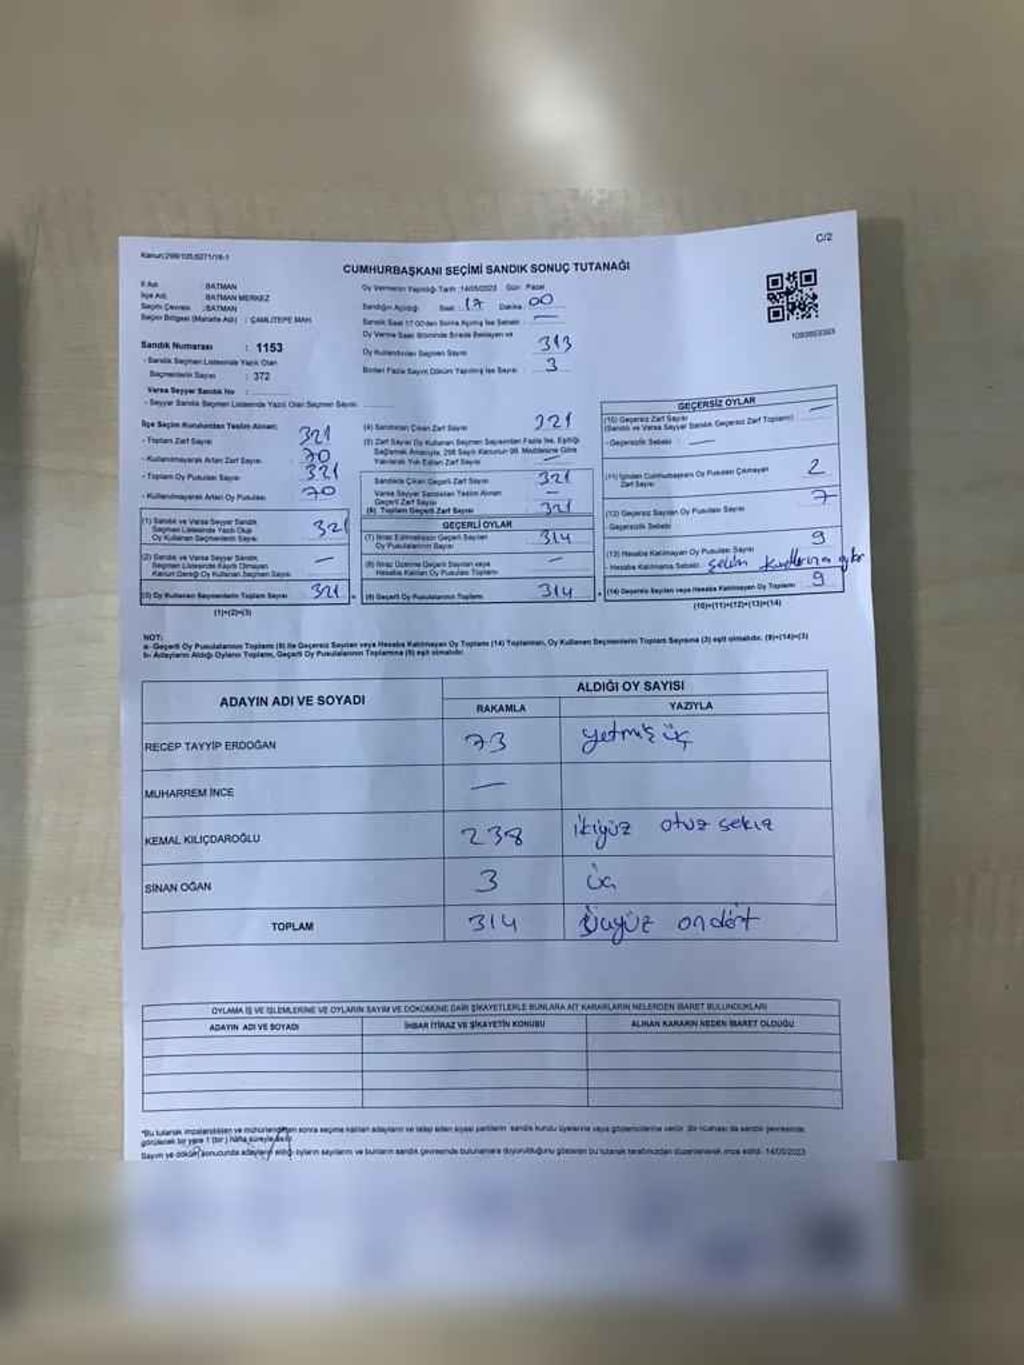 C/2
Kanun:298/105,6271/18-1
CUMHURBAŞKANI SEÇİMİ SANDIK SONUÇ TUTANAĞI
İl Adı : BATMAN
İlçe Adı : BATMAN MERKEZ
Seçim Çevresi : BATMAN
Seçim Bölgesi (Mahalle Adı) : ÇAMLITEPE MAH.
Sandık Numarası : 1153
- Sandık Seçmen Listesinde Yazılı Olan
Seçmenlerin Sayısı : 372
Varsa Seyyar Sandık No :
- Seyyar Sandık Seçmen Listesinde Yazılı Olan Seçmen Sayısı
Oy Vermenin Yapıldığı Tarih :14/05/2023 Gün : Pazar
Sandığın Açıldığı Saat : 17 Dakika : 00
Sandık Saat 17:00'den Sonra Açılmış İse Sebebi : —
Oy Verme Saati Bitiminde Sırada Bekleyen ve
Oy Kullandırılan Seçmen Sayısı : 313
Birden Fazla Sayım Döküm Yapılmış İse Sayısı : 3
İlçe Seçim Kurulundan Teslim Alınan:
- Toplam Zarf Sayısı 321
- Kullanılmayarak Artan Zarf Sayısı 70
- Toplam Oy Pusulası Sayısı 321
- Kullanılmayarak Artan Oy Pusulası 70
(1) Sandık ve Varsa Seyyar Sandık
Seçmen Listesinde Yazılı Olup
Oy Kullanan Seçmenlerin Sayısı 321
(2) Sandık ve Varsa Seyyar Sandık
Seçmen Listesinde Kayıtlı Olmayan
Kanun Gereği Oy Kullanan Seçmen Sayısı —
(3) Oy Kullanan Seçmenlerin Toplam Sayısı 321
(1)+(2)=(3)
(4) Sandıktan Çıkan Zarf Sayısı 321
(5) Zarf Sayısı Oy Kullanan Seçmen Sayısından Fazla İse, Eşitliği
Sağlamak Amacıyla, 298 Sayılı Kanunun 98. Maddesine Göre
Yakılarak Yok Edilen Zarf Sayısı —
Sandıkta Çıkan Geçerli Zarf Sayısı 321
Varsa Seyyar Sandıktan Teslim Alınan
Geçerli Zarf Sayısı —
(6) Toplam Geçerli Zarf Sayısı 321
GEÇERLİ OYLAR
(7) İtiraz Edilmeksizin Geçerli Sayılan
Oy Pusulalarının Sayısı 314
(8) İtiraz Üzerine Geçerli Sayılan veya
Hesaba Katılan Oy Pusulası Toplamı —
(9) Geçerli Oy Pusulalarının Toplamı 314
GEÇERSİZ OYLAR
(10) Geçersiz Zarf Sayısı —
(Sandık ve Varsa Seyyar Sandık Geçersiz Zarf Toplamı)
- Geçersizlik Sebebi : —
(11) İçinden Cumhurbaşkanı Oy Pusulası Çıkmayan
Zarf Sayısı 2
(12) Geçersiz Sayılan Oy Pusulası Sayısı 7
- Geçersizlik Sebebi
(13) Hesaba Katılmayan Oy Pusulası Sayısı 9
- Hesaba Katılmama Sebebi : seçim
(14) Geçersiz Sayılan veya Hesaba Katılmayan Oy Toplamı 9
(10)+(11)+(12)+(13)=(14)
NOT:
a- Geçerli Oy Pusulalarının Toplamı (9) ile Geçersiz Sayılan veya Hesaba Katılmayan Oy Toplamı (14) Toplamları, Oy Kullanan Seçmenlerin Toplam Sayısına (3) eşit olmalıdır. (9)+(14)=(3)
b- Adayların Aldığı Oyların Toplamı, Geçerli Oy Pusulalarının Toplamına (9) eşit olmalıdır.
ADAYIN ADI VE SOYADI ALDIĞI OY SAYISI
RAKAMLA YAZIYLA
RECEP TAYYİP ERDOĞAN 73 yetmiş üç
MUHARREM İNCE —
KEMAL KILIÇDAROĞLU 238 ikiyüz otuz sekiz
SİNAN OĞAN 3 üç
TOPLAM 314 üçyüz ondört
OYLAMA İŞ VE İŞLEMLERİNE VE OYLARIN SAYIM VE DÖKÜMÜNE DAİR ŞİKAYETLERLE BUNLARA AİT KARARLARIN NELERDEN İBARET BULUNDUKLARI
ADAYIN ADI VE SOYADI İHBAR İTİRAZ VE ŞİKAYETİN KONUSU ALINAN KARARIN NEDEN İBARET OLDUĞU
*Bu tutanak imzalandıktan ve mühürlendikten sonra seçime katılan adayların ve talep eden siyasi partilerin sandık kurulu üyelerine veya gözlemcilerine verilir. Bir nüshası da sandık çevresinde
görülecek bir yere 1 (bir) hafta süreyle asılır.
Sayım ve döküm sonucunda adayların aldığı oyların sayılarını ve bunların sandık çevresinde bulunanlara duyurulduğunu gösteren bu tutanak tarafımızdan düzenlenerek imza edildi. 14/05/2023